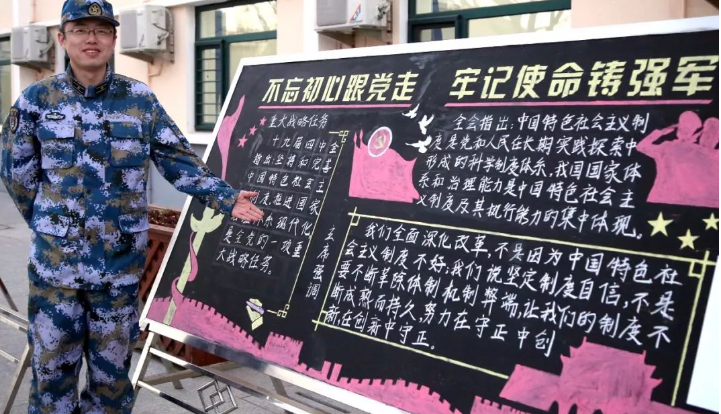 不忘初心跟党走 牢记使命铸强军
重大战略任务
十九届四中全
指出:坚持和完善
中国特色社会主
度、推进国家
现代化
是全党的一项重
大战略任务。
主席强调
全会指出:中国特色社会主义制
度是党和人民在长期实践探索中
形成的科学制度体系,我国国家体
系和治理能力是中国特色社会主
义制度及其执行能力的集中体现。
我们全面深化改革,不是因为中国特色社
会主义制度不好;我们说坚定制度自信,不是
要不断革除体制机制弊端,让我们的制度不
断成熟而持久,努力在守正中创
新,在创新中守正。